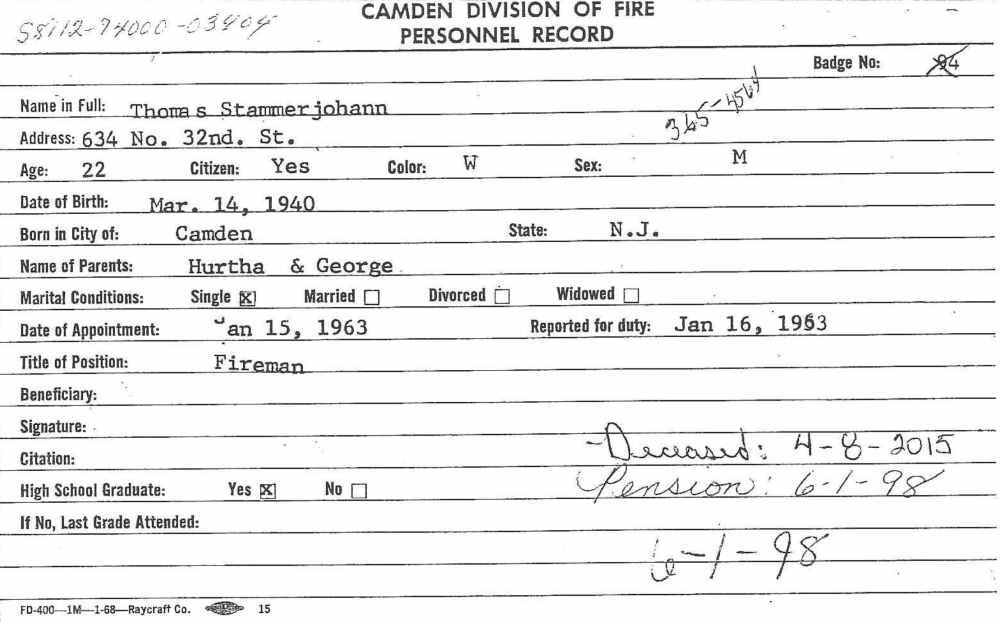 CAMDEN DIVISION OF FIRE
58112-94000-03404
PERSONNEL RECORD
Badge No: 94
Name in Full: Thomas Stammerjohann
365-4564
Address: 634 No. 32nd. St.
Age: 22 Citizen: Yes Color: W Sex: M
Date of Birth: Mar. 14, 1940
Born in City of: Camden State: N.J.
Name of Parents: Hurtha & George
Marital Conditions: Single Married Divorced Widowed
Date of Appointment: Jan 15, 1963 Reported for duty: Jan 16, 1963
Title of Position: Fireman
Beneficiary:
Signature:
-Deceased: 4-8-2015
Citation:
Pension: 6-1-98
High School Graduate: Yes No
If No, Last Grade Attended:
6-1-98
FD-400—1M—1-68—Raycraft Co. 15